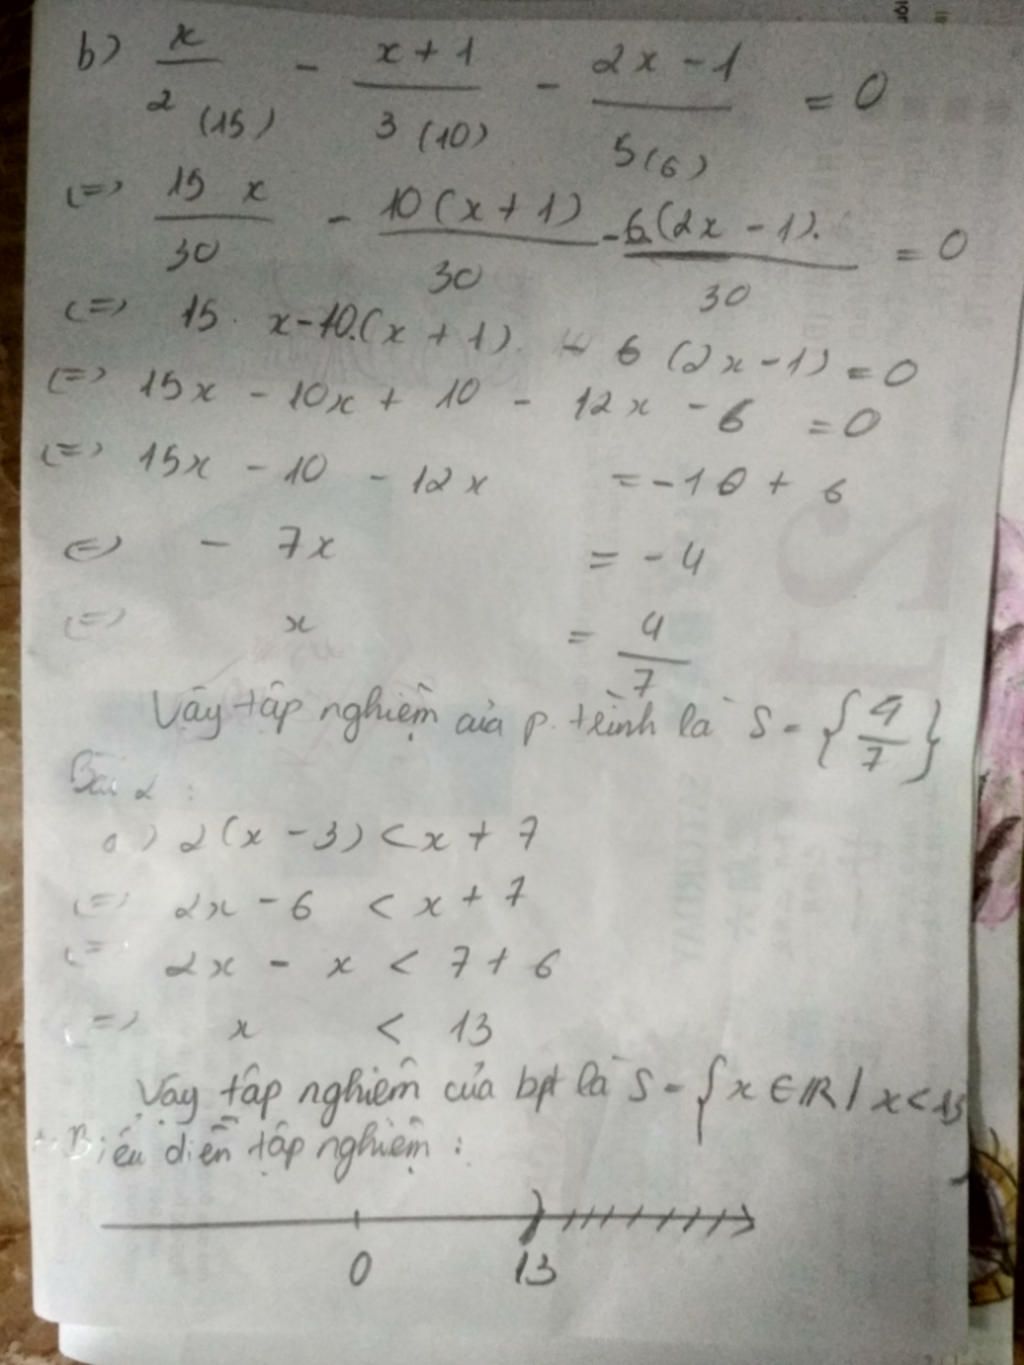 b) x/2 (15) - x + 1/3 (10) - 2x - 1/5 (6) = 0
(=) 15 x/30 - 10(x + 1)/30 - 6(2x - 1)./30 = 0
(=) 15. x-10.(x + 1) - 6 (2x - 1) = 0
(=) 15x - 10x + 10 - 12x - 6 = 0
(=) 15x - 10 - 12x = -10 + 6
(=) - 7x = - 4
(=) x = 4/7
Vậy tập nghiệm của p. trình là S = {4/7}
Bài 2 :
a) 2(x - 3) < x + 7
(=) 2x - 6 < x + 7
(= 2x - x < 7 + 6
(=) x < 13
Vậy tập nghiệm của bpt là S = {x ∈ R / x < 13
Biểu diễn tập nghiệm :
0 13